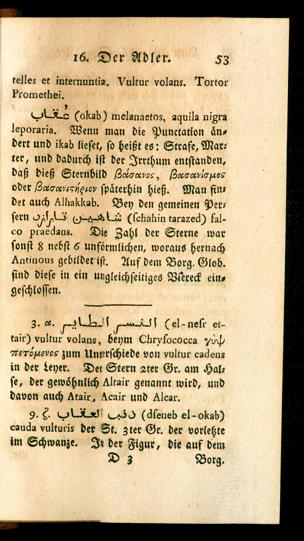 16. Der Adler. 53
telles et internuntia. Vultur volans. Tortor
Promethei.
عُقاب (okab) melanaetos, aquila nigra
leporaria. Wenn man die Punctation än-
dert und ikab lieset, so heißt es: Strafe, Mar-
ter, und dadurch ist der Irrthum entstanden,
daß dieß Sternbild βάσανος, βασανισμος
oder βασανιστήριον späterhin hieß. Man fin-
det auch Alhakkab. Bey den gemeinen Per-
sern شاهين تارازد (schahin tarazed) fal-
co praedans. Die Zahl der Sterne war
sonst 8 nebst 6 unförmlichen, woraus hernach
Antinous gebildet ist. Auf dem Borg. Glob.
sind diese in ein ungleichseitiges Viereck ein-
geschlossen.
3. α. النسر الطاير (el-nesr et-
tair) vultur volans, beym Chrysococca γὺψ
πετόμενος zum Unterschiede von vultur cadens
in der Leyer. Der Stern 2ter Gr. am Hal-
se, der gewöhnlich Altair genannt wird, und
davon auch Atair, Acair und Alcar.
9. ζ. دنب العقاب (dseneb el-okab)
cauda vulturis der St. 3ter Gr. der vorletzte
im Schwanze. In der Figur, die auf dem
D 3 Borg.